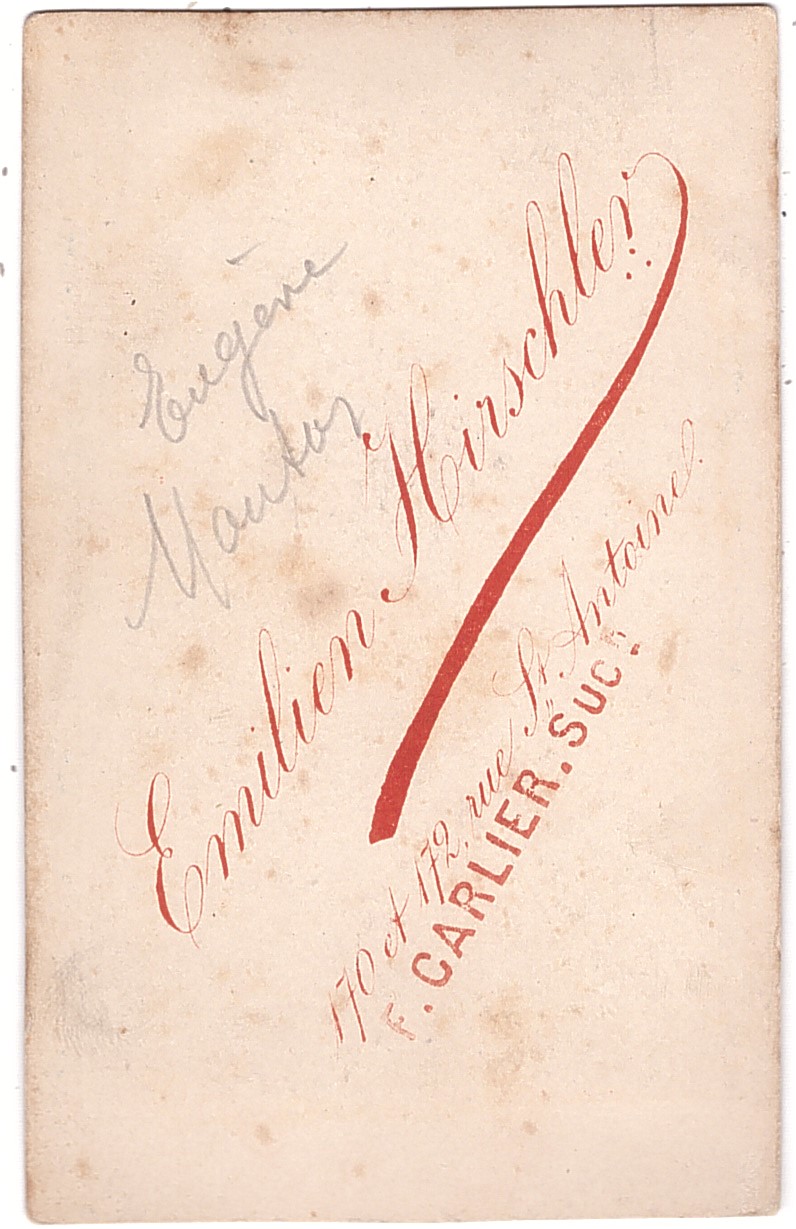 Eugène
Mouton
Emilien Hirschler
170 et 172, rue St. Antoine.
F. CARLIER. SUCR